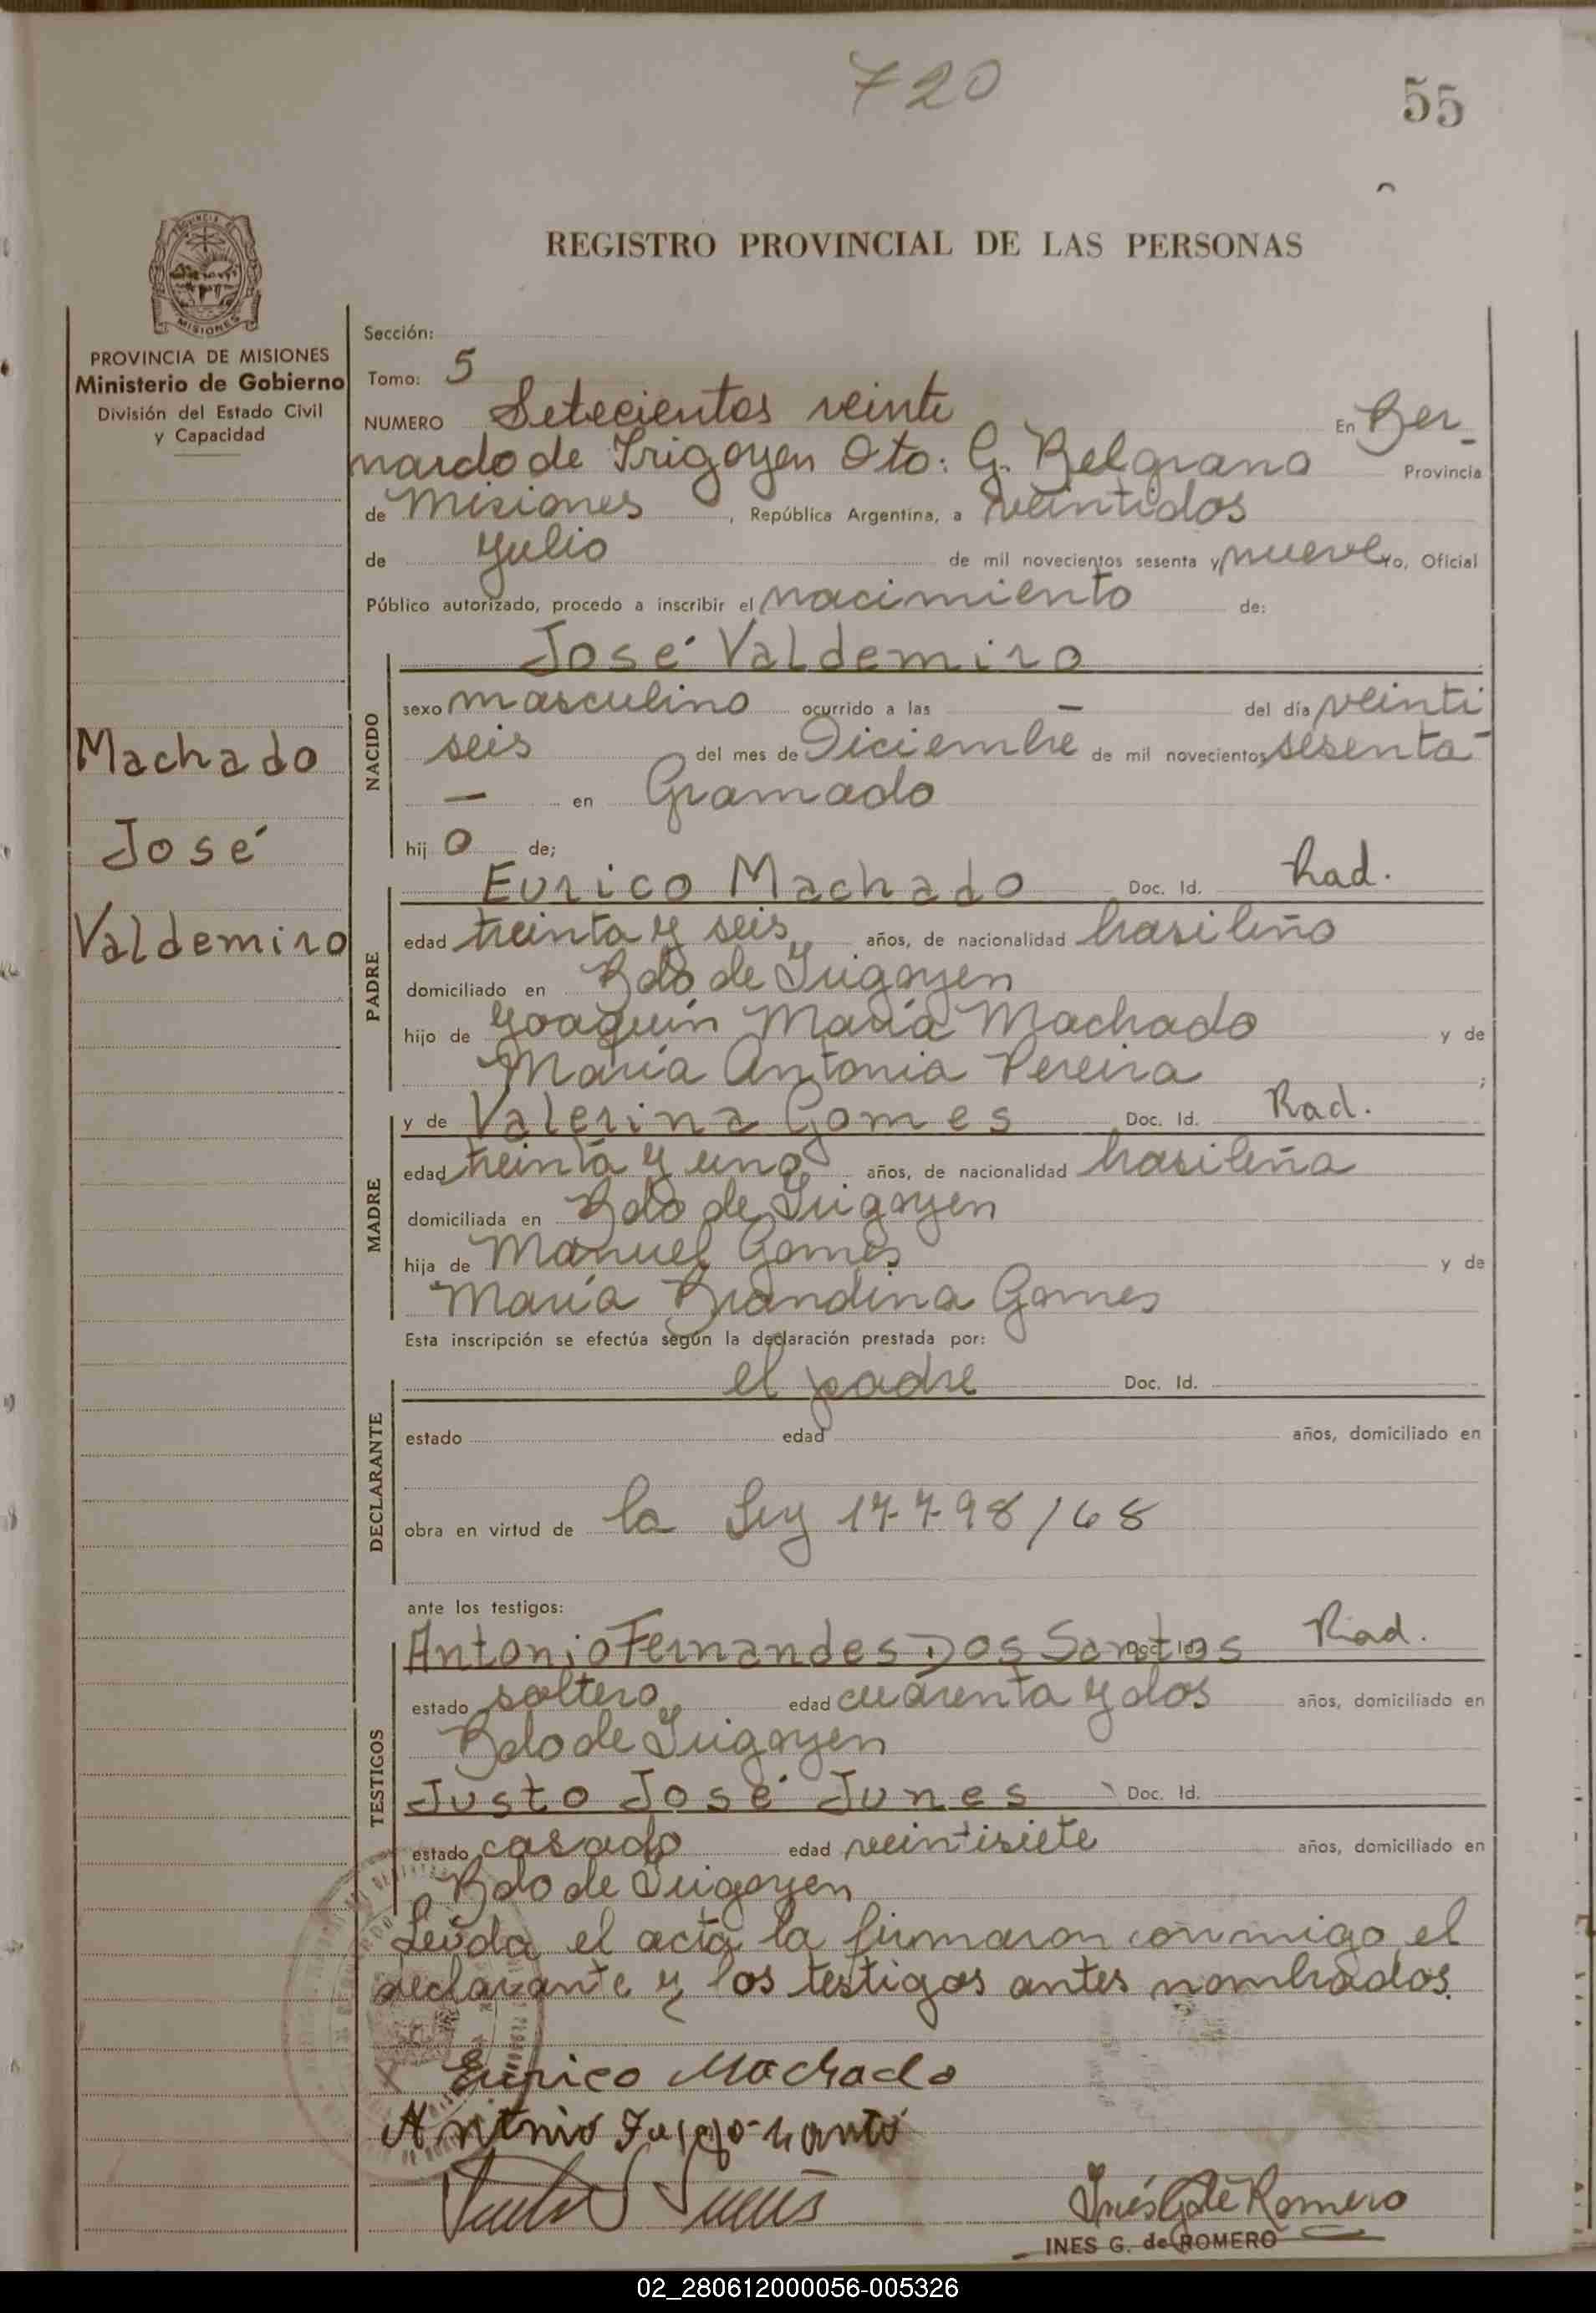 720
55
REGISTRO PROVINCIAL DE LAS PERSONAS
PROVINCIA
MISIONES
PROVINCIA DE MISIONES
Ministerio de Gobierno
División del Estado Civil
y Capacidad
Machado
José
Valdemiro
Sección:
Tomo: 5
NUMERO Setecientos veinte En Ber-
nardo de Irigoyen Dto: G. Belgrano Provincia
de Misiones, República Argentina, a veintidos
de Julio de mil novecientos sesenta y nueve Yo, Oficial
Público autorizado, procedo a inscribir el nacimiento de:
NACIDO
José Valdemiro
sexo masculino ocurrido a las — del día veinti
seis del mes de Diciembre de mil novecientos sesenta-
— en Gramado
hij o de;
PADRE
Eurico Machado Doc. Id. Rad.
edad treinta y seis años, de nacionalidad brasileño
domiciliado en Bdo de Irigoyen
hijo de Joaquín María Machado y de
María Antonia Pereira ;
MADRE
y de Valerina Gomes Doc. Id. Rad.
edad treinta y uno años, de nacionalidad brasileña
domiciliada en Bdo de Irigoyen
hija de Manuel Gomes y de
María Brandina Gomes
Esta inscripción se efectúa según la declaración prestada por:
DECLARANTE
el padre Doc. Id.
estado edad años, domiciliado en
obra en virtud de la Ley 17798/68
ante los testigos:
TESTIGOS
Antonio Fernandes Dos Santos Doc. Id. Rad.
estado soltero edad cuarenta y dos años, domiciliado en
Bdo de Irigoyen
Justo José Junes Doc. Id.
estado casado edad veintisiete años, domiciliado en
Bdo de Irigoyen
Leída el acta la firmaron conmigo el
declarante y los testigos antes nombrados.
X Eurico Machado
Inés G de Romero
INES G. de ROMERO
02_280612000056-005326